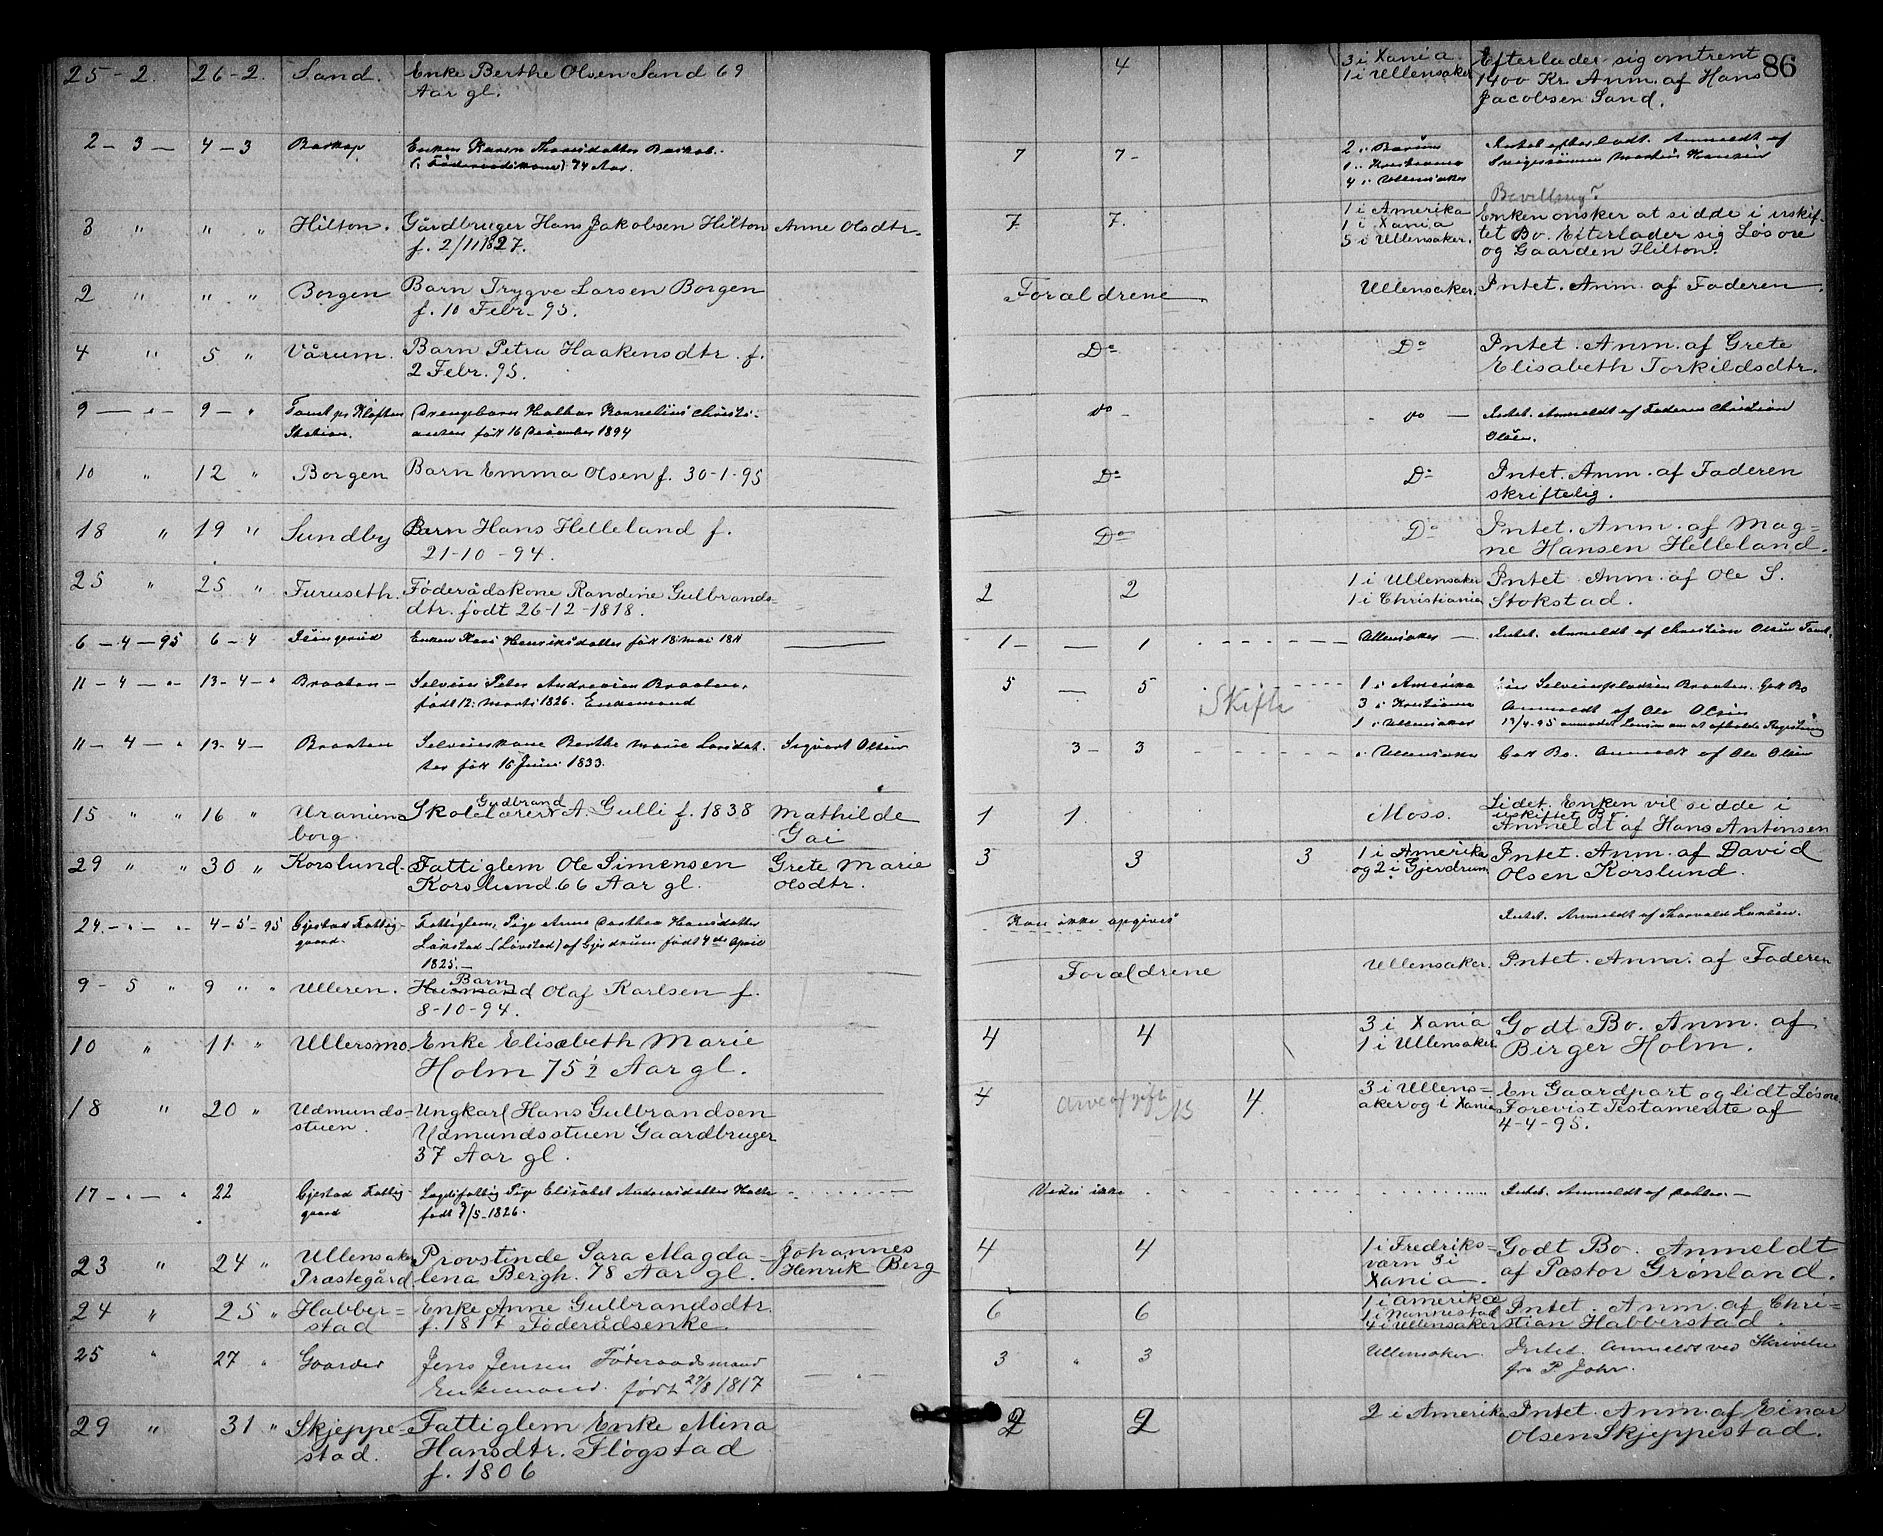 86
25 - 2. 26 - 2. Sand. Enke Berthe Olsen Sand 69 4 3 i Xania Efterlader sig omtrent
Aar gl. 1 i Ullensaker 1400 Kr. Anm. af Hans
Jacobsen Sand.
2 - 3 - 4 - 3 Baskop Enken Karen 7 7 - 2 i Bærum Intet efterladt. Anmeldt af
(: Føderaadskone) 74 Aar. 1 " Kristiania Svigersønnen Martin Hansen
4 i Ullensaker
Bevilling?
3 " " " Hilton. Gårdbruger Hans Jakobsen Hilton Anne Olsdtr. 7 7. 1 i Amerika Enken ønsker at sidde i uskif-
f. 2/11 1827. 1 i Xania tet Bo. Efterlader sig Løsøre
5 i Ullensaker. og Gaarden Hilton.
2 " " " Borgen Barn Trygve Larsen Borgen Forældrene Ullensaker. Intet. Anm. af Faderen.
f. 10 Febr. 95.
4 " 5 " Vårum. Barn Petra Haakensdtr. f. Do Do Intet. Anm. af Grete
2 Febr. 95. Elisabeth Torkildsdtr.
9 - " - 9 - " Tomt pr Kløften Drengebarn Halvar Kornelius Christi- Do - Do - Intet. Anmeldt af Faderen Christian
Station. ansen født 16 December 1894 Olsen.
10 " 12 " Borgen Barn Emma Olsen f. 30-1-95 Do Do Intet. Anm. af Faderen
skriftelig.
18 " 19 " Sundby Barn Hans Helleland f. Do Do Intet. Anm. af Mag-
21-10-94. ne Hansen Helleland.
25 " 25 " Furuseth. Føderådskone Randine Gulbrands- 2 2 1 i Ullensaker Intet. Anm. af Ole S.
dtr. født 26-12-1818. 1 i Christiania Stokstad.
6 - 4 - 95 6 - 4 Enken Kari Henriksdatter født 18 Mai 1811 1 - - 1 Ullensaker - Intet. Anmeldt af Christian Olsen Tomt.
11 - 4 - " - 13 - 4 - " Braaten - Selveier Peter Andreasen Braaten, 5 - 5 Skifte 1 i Amerika Selveierpladsen Braaten. Godt Bo
født 12. Marts 1826. Enkemand 3 i Kristiania Anmeldt af Ole Olsen
1 i Ullensaker 13/4-95 anmodet Lensm. om at afholde Registering
11 - 4 - " 13 - 4 - Braaten Selveierkone Berthe Marie Larsdat- Sigvart Olsen 3 - 3 i Ullensaker Godt Bo. Anmeldt af Ole Olsen
ter født 16 Juni 1833.
15 " " 16 " Uranien- Skolelærer Gudbrand A. Gulli f. 1838 Mathilde 1 1. Moss. Lidet. Enken vil sidde i
borg. Gai uskiftet Bo.
Anmeldt af Hans Antonsen
29 " " 30 " Korslund. Fattiglem Ole Simensen Grete Marie 3 3 3 1 i Amerika Intet. Anm. af David
Korslund 66 Aar gl. Olsdtr. og 2 i Gjerdrum Olsen Korslund.
24. - " - " - 4 - 5 - 95 Gjestad Fattig- Fattiglem, Pige Anne Dorthea Hansdatter Kan ikke opgives Intet. Anmeldt af Thorvald Larsen.
gaard. Løkstad (Løvstad) af Gjerdrum født 4de April
1825. -
9 - 5 " 9 " " Ulleren. Husmand Barn Olaf Karlsen f. Forældrene Ullensaker. Intet. Anm. af Faderen
8-10-94.
10 " 11 " Ullersmo. Enke Elisabeth Marie 4 4 3 i Xania Godt Bo. Anm. af
Holm 75½ Aar gl. 1 i Ullensaker Birger Holm.
18 " 20 " Udmunds- Ungkarl Hans Gulbrandsen 4 Arveafgift 4. 3 i Ullens- En Gaardpart og lidt Løsøre
stuen. Udmundsstuen Gaardbruger aker og i Xania Forevist Testamente af
37 Aar gl. 4-4-95.
17 - " - " 22 Gjestad Fattig- Lægdsfattig Pige Elisabet Andreasdatter Vides ikke Intet. Anmeldt af
gaard født 9/5-1826.
23 " 24 " Ullensaker Provstinde Sara Magda- Johannes 4 4 1 i Fredriks- Godt Bo. Anmeldt
Præstegård lena Bergh. 78 Aar gl. Henrik Berg værn 3 i af Pastor Grønland.
Xania.
24 " 25 " Habber- Enke Anne Gulbrandsdtr. 6 6 1 i Amerika Intet. Anm. af Chri-
stad f. 1817 Føderådsenke. 1 i Nannestad stian Habberstad.
4 i Ullensaker
25 " 27 " Gaarder Jens Jensen Føderaadsmand - " - 3 " 3 Ullensaker. Intet. Anmeldt ved Skrivelse
Enkemand. født 29/8 1817 fra P. Johr.
29 " 31 " Skjeppe- Fattiglem Enke Mina 2 2 2 i Amerika Intet. Anm. af Einar
stad. Hansdtr. Fløgstad Olsen Skjeppestad.
f. 1806